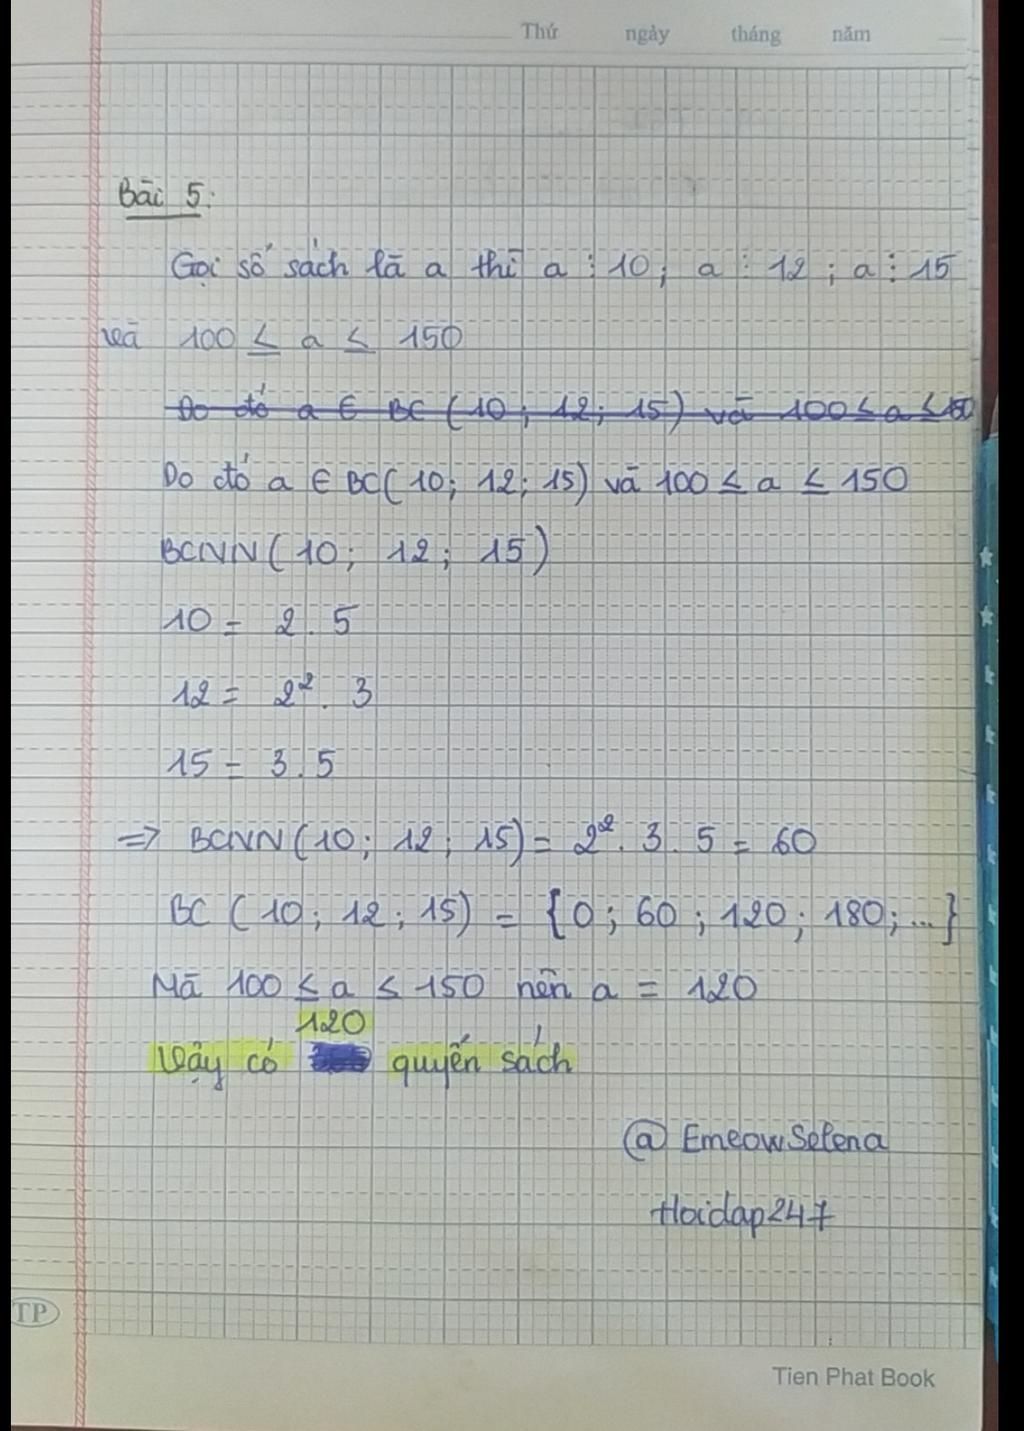 Thứ ngày tháng năm
Bài 5:
Gọi số sách là a thì a ⋮ 10; a ⋮ 12; a ⋮ 15
và 100 ≤ a ≤ 150
Do đó a ∈ BC (10; 12; 15) và 100 ≤ a ≤ 150
Do đó a ∈ BC(10; 12; 15) và 100 ≤ a ≤ 150
BCNN(10; 12; 15)
10 = 2.5
12 = 2². 3
15 = 3.5
=> BCNN(10; 12; 15) = 2². 3. 5 = 60
BC (10; 12; 15) = {0; 60; 120; 180; ...}
Mà 100 ≤ a ≤ 150 nên a = 120
Vậy có 120 quyển sách
@ EmeowSelena
Hoidap247
TP
Tien Phat Book